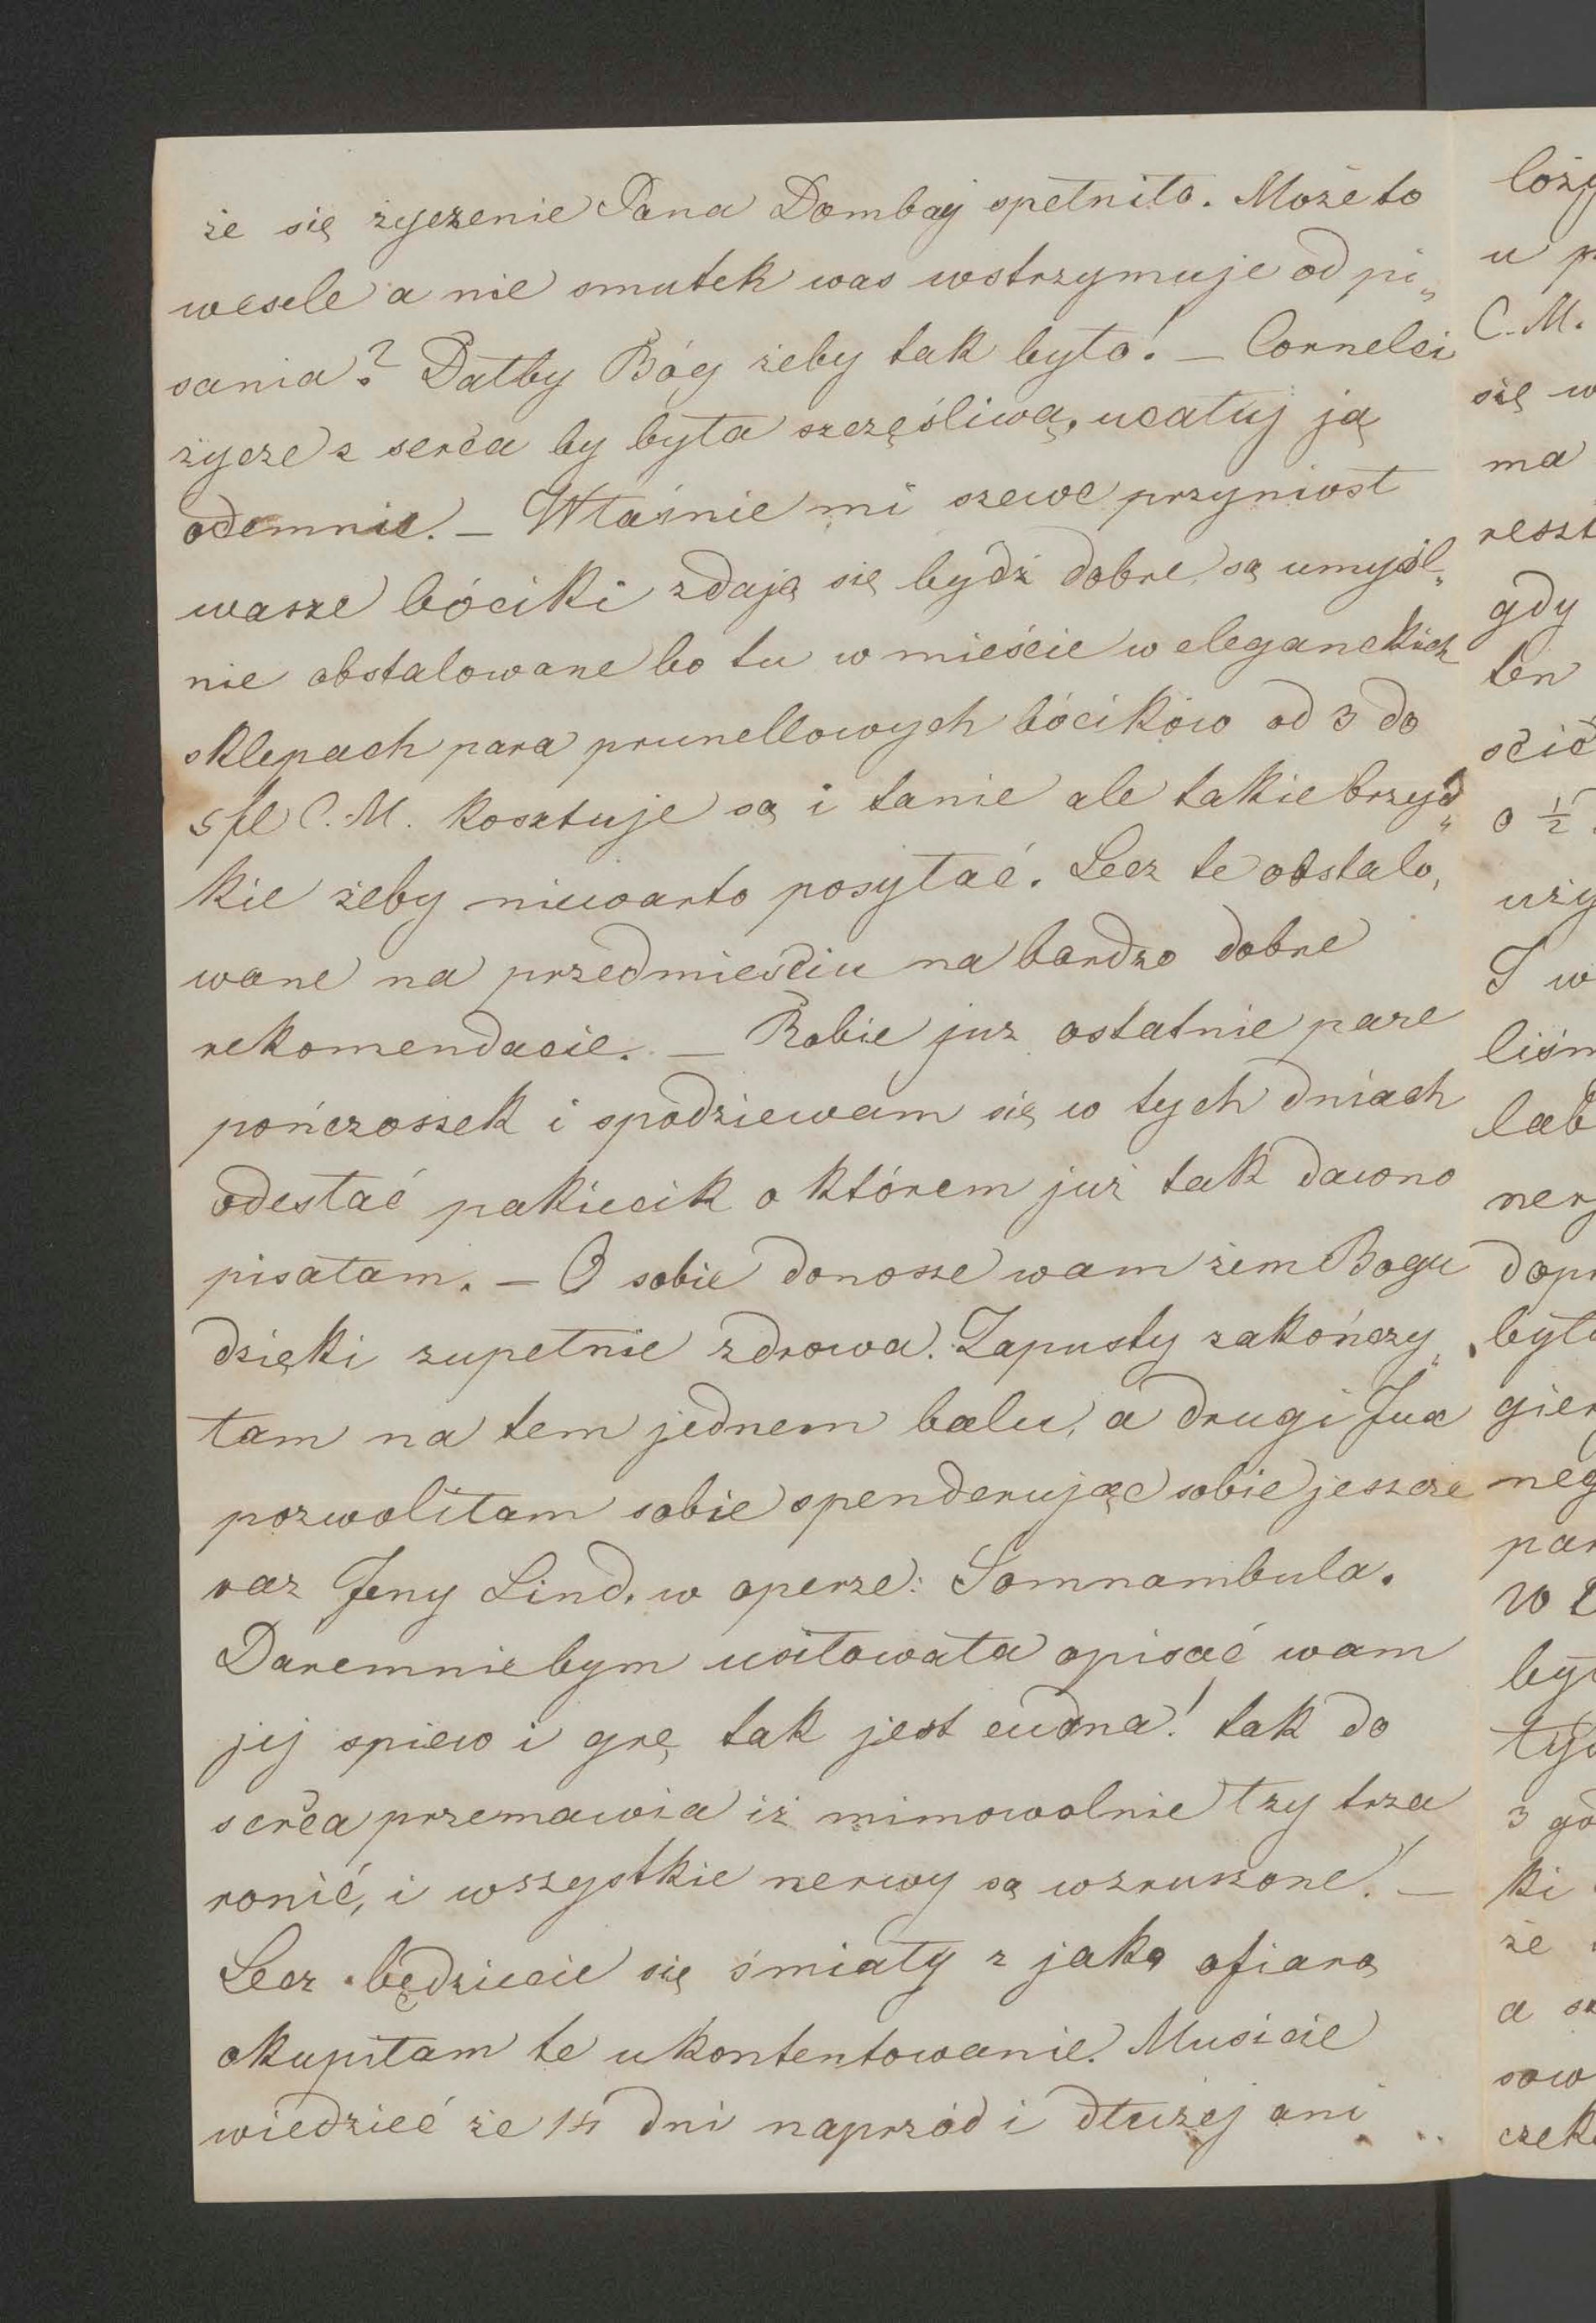 że się życzenie Pana Dombaj spełniło. Może to
wesele a nie smutek was wstrzymuje od pi„
sania? Dałby Bóg żeby tak było! — Cornelci
życze z serca by była szczęśliwą, ucałuj ją
odemnie. — Właśnie mi szewc przyniost
wasze bóciki zdają się bydź dobre, są umyśl„
nie obstalowane bo tu w mieście w eleganckich
sklepach para prunellowych bócików od 3 do
5 fl C. M. kosztuje są i tanie ale takie brzyd„
kie żeby niewarto posyłać. Lecz te obstalo„
wane na przedmieściu na bardzo dobre
rekomendacie. — Robie juz ostatnie pare
pończoszek i spodziewam się w tych dniach
odesłać pakiecik o którem już tak dawno
pisałam. — O sobie donosze wam żem Bogu
dzięki zupełnie zdrowa. Zapusty zakończy„
łam na tem jednem balu, a drugi Jux
pozwoliłam sobie spenderując sobie jeszcze
raz Jeny Lind. w operze: Somnambula.
Daremniebym usiłowała opisać wam
jej spiew i grę tak jest cudna! tak do
serca przemawia iż mimowolnie łzy trza
ronić, i wszystkie nerwy są wzruszone! —
Lecz będziecie się śmiały z jaką ofiarą
okupiłam te ukontentowanie. Musicie
wiedzieć że 14 dni naprzód i dłużej ani